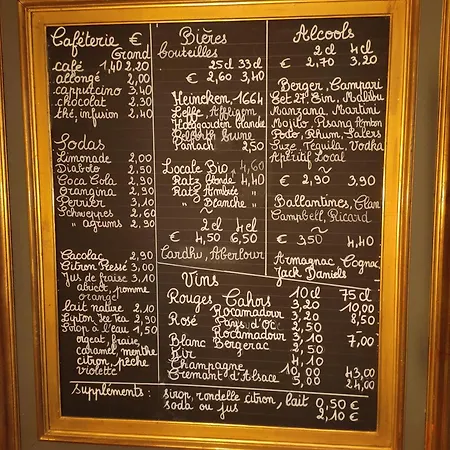 Caféterie €
Grand
café 1,40 2,20
allongé 2,00
cappuccino 3,40
chocolat 2,30
thé, infusion 2,40
Sodas
Limonade 2,00
Diabolo 2,50
Coca Cola 2,90
Orangina 2,90
Perrier 3,10
Schweppes 2,60
" agrums 2,90
Cacolac 2,90
Citron Pressé 3,00
Jus de fraise 3,10
abricot, pomme
orange
lait nature 2,10
Lipton Ice Tea 2,90
Sirop à l'eau 1,50
orgeat, fraise,
caramel, menthe
citron, pêche
violette
Bières
Bouteilles
25cl 33cl
€ 2,60 3,40
Heineken, 1664
Leffe, Affligem
Hoegaarden blanche
Pelforth brune
Panach 2,50
~
Locale Bio 4,60
Ratz Blonde 4,40
Ratz Ambrée
" Blanche
~
2 cl 4 cl
€ 4,50 6,50
Cardhu, Aberlour
Alcools
2 cl 4 cl
€ 2,70 3,20
Berger, Campari
Get 27, Gin, Malibu
Manzana, Martini
Mojito, Pisang
Porto, Rhum,
Suze, Tequila, Vodka
Apéritif Local
~
€ 2,90 3,90
Ballantines, Clan
Campbell, Ricard
~
€ 3,50 4,40
Armagnac Cognac
Jack Daniels
Vins
10 cl 75 cl
Rouges Cahors 3,20 10,00
Rocamadour 3,20 8,50
Rosé Pays d'Oc 2,50
Rocamadour 3,10 7,00
Blanc Bergerac 2,50
Kir 4,10
Champagne 10,00 43,00
Cremant d'Alsace 5,00 24,00
Suppléments : sirop, rondelle citron, lait 0,50 €
soda ou jus 2,10 €